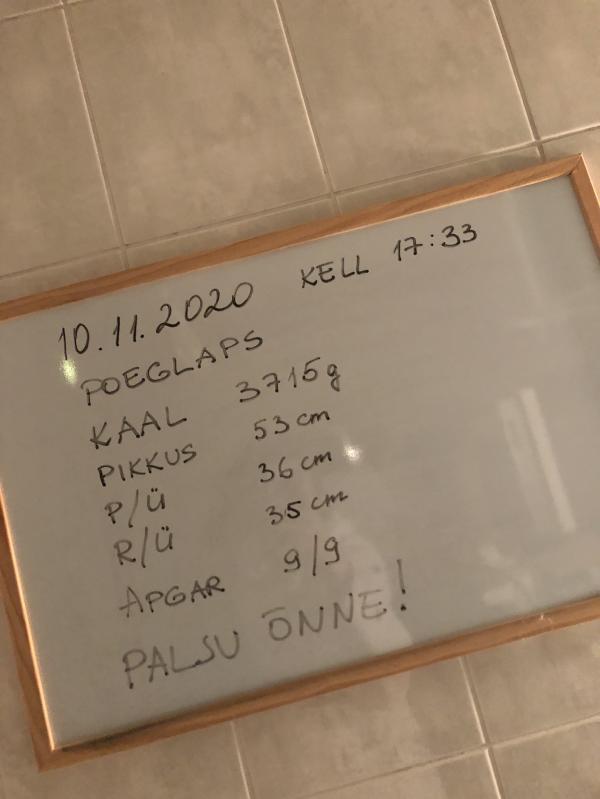 10.11.2020 KELL 17:33
POEGLAPS
KAAL 3715g
PIKKUS 53 cm
P/Ü 36 cm
R/Ü 35 cm
APGAR 9/9
PALJU ÕNNE!